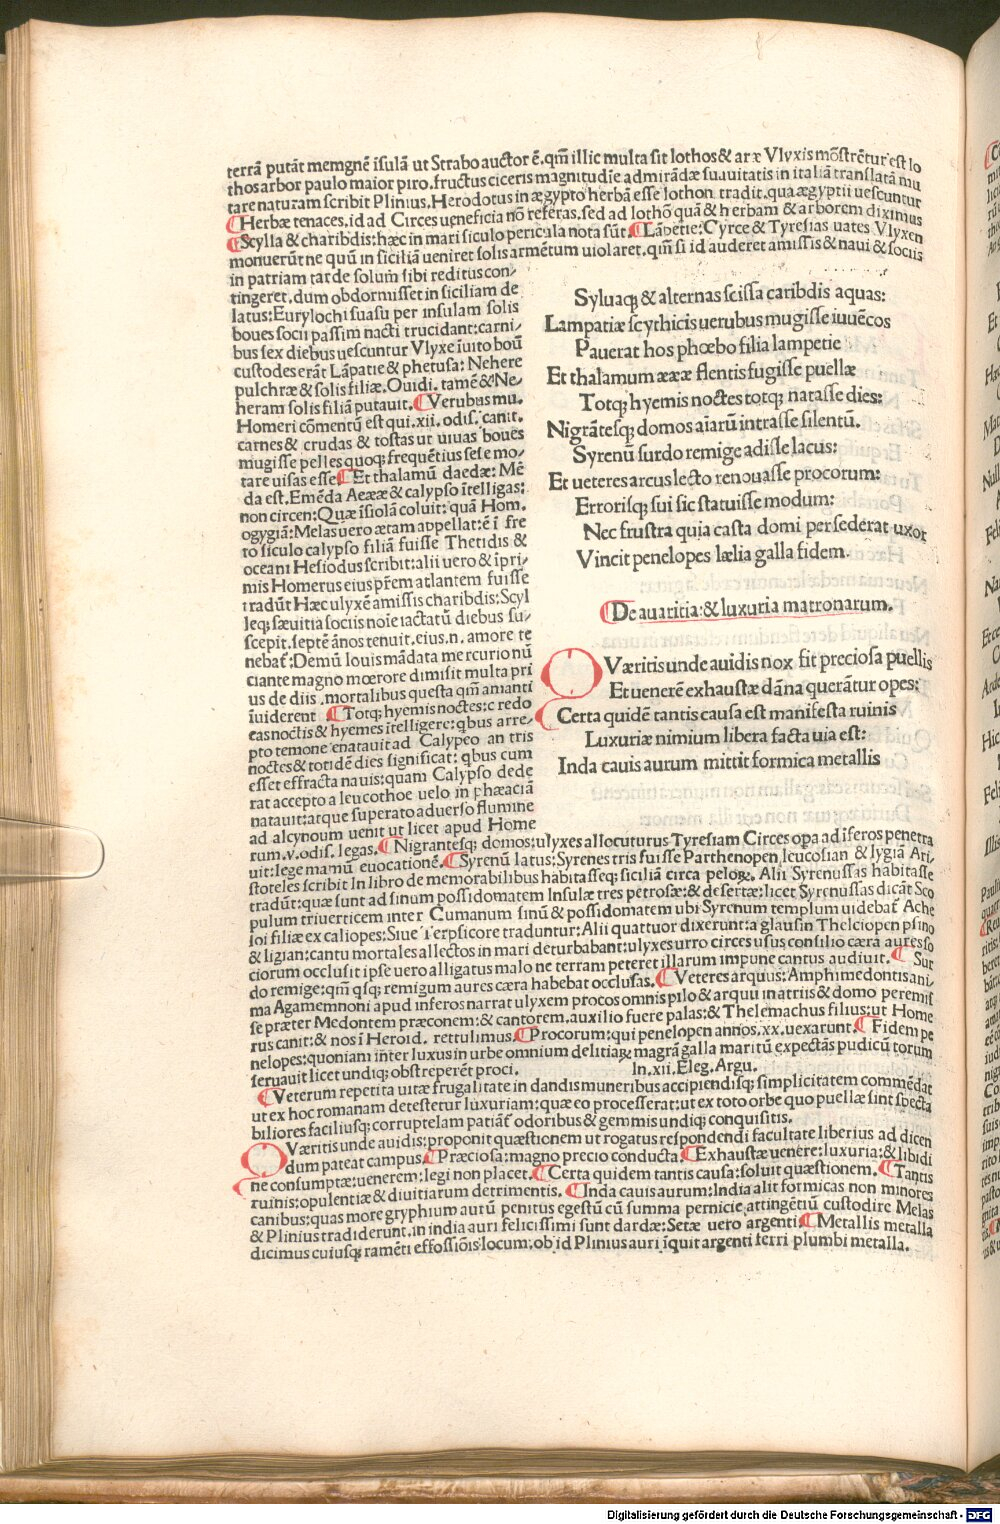 terrā putāt memgnē isulā ut Strabo auctor ē. qm̄ illic multa sit lothos & aræ Vlyxis mōstrētur est lo
thos arbor paulo maior piro. fructus ciceris magnitudīe admirādæ suauitatis in italiā translatā mu
tare naturam scribit Plinius. Herodotus in ægypto herbā esse lothon tradit. qua ægyptii uescuntur
Herbæ tenaces. id ad Circes ueneficia nō referas. sed ad lothō quā & herbam & arborem diximus
Scylla & charibdis: hæc in mari siculo pericula nota sūt. Lāpetie: Cyrce & Tyresias uates Vlyxen
monuerūt ne quū in siciliā ueniret solis armētum uiolaret. qm̄ si id auderet amissis & naui & sociis
in patriam tarde solum sibi reditus con/
tingeret. dum obdormisset in siciliam de
latus: Eurylochi suasu per insulam solis
boues socii passim nacti trucidant: carni/
bus sex diebus uescuntur Vlyxe īuito boū
custodes erāt Lāpatie & phetusa: Nehere
pulchræ & solis filiæ. Ouidi. tamē & Ne/
heram solis filiā putauit. Verubus mu.
Homeri cōmentū est qui .xii. odis. canit.
carnes & crudas & tostas ut uiuas boues
mugisse pelles quoq; frequētius sese mo/
tare uisas esse Et thalamū daedæ: Mē
da est. Emēda Aeææ & calypso ītelligas:
non circen: Quæ īsiolā coluit: quā Hom.
ogygiā: Melas uero ætam appellat: ē ī fre
to siculo calypso filiā fuisse Thetidis &
oceani Hesiodus scribit: alii uero & īpri/
mis Homerus eius pr̄em atlantem fuisse
tradūt Hæc ulyxē amissis charibdis: Scyl
leq; sæuitia sociis noīe iactatū diebus su/
scepit. septē ānos tenuit. eius. n. amore te
nebat̄: Demū Iouis mādata mercurio nū
ciante magno mœrore dimisit multa pri
us de diis .mortalibus questa qm̄ amanti
īuiderent Totq; hyemis noctes: credo
eas noctis & hyemes ītelligere: qbus arre/
pto temone enatauit ad Calypeo an tris
noctes & totidē dies significat: qbus cum
esset effracta nauis: quam Calypso dede
rat accepto a leucothoe uelo in phæaciā
natauit: atque superato aduerso flumine
ad alcynoum uenit ut licet apud Home
Syluaq; & alternas scissa caribdis aquas:
Lampatiæ scythicis uerubus mugisse iuuēcos
Pauerat hos phœbo filia lampetie
Et thalamum æææ flentis fugisse puellæ
Totq; hyemis noctes totq; natasse dies:
Nigrātesq; domos aiarū intrasse silentū.
Syrenū surdo remige adisse lacus:
Et ueteres arcus lecto renouasse procorum:
Errorisq; sui sic statuisse modum:
Nec frustra quia casta domi persederat uxor
Vincit penelopes lælia galla fidem.
De auaritia: & luxuria matronarum.
QVæritis unde auidis nox fit preciosa puellis
Et uenerē exhaustæ dāna querātur opes:
Certa quidē tantis causa est manifesta ruinis
Luxuriæ nimium libera facta uia est:
Inda cauis aurum mittit formica metallis
rum .v. odis. legas. Nigrantesq; domos: ulyxes allocuturus Tyresiam Circes opa ad īferos penetra
uit: lege mamū euocationē. Syrenū latus: Syrenes tris fuisse Parthenopen, leucosian & lygiā Ari/
stoteles scribit In libro de memorabilibus habitasseq; siciliā circa pelorꝝ. Alii Syrenussas habitasse
tradūt: quæ sunt ad sinum possidomatem Insulæ tres petrosæ: & desertæ: licet Syrenussas dicāt Sco
pulum triuerticem inter Cumanum sinū & possidomatem ubi Syrenum templum uidebat̄ Ache
loi filiæ ex caliopes: Siue Terpsicore traduntur: Alii quattuor dixerunt: a glausin Thelciopen psino
& ligian: cantu mortales allectos in mari deturbabant: ulyxes urro circes usus consilio cæra aures so
ciorum occlusit ipse uero alligatus malo ne terram peteret illarum impune cantus audiuit. Sur
do remige: qm̄ qsq; remigum aures cæra habebat occlusas. Veteres arquus: Amphimedontis ani/
ma Agamemnoni apud inferos narrat ulyxem procos omnis pilo & arquu in atriis & domo peremis
se præter Medontem præconem: & cantorem. auxilio fuere palas: & Thelemachus filius: ut Home
rus canit: & nos ī Heroid. rettulimus. Procorum: qui penelopen annos .xx. uexarunt. Fidem pe
nelopes: quoniam inter luxus in urbe omnium delitiaꝝ magrā galla maritū expectās pudicū torum
seruauit licet undiq; obstreperēt proci. In .xii. Eleg. Argu.
Veterum repetita uitæ frugalitate in dandis muneribus accipiendisq; simplicitatem commēdat
ut ex hoc romanam detestetur luxuriam: quæ eo processerat: ut ex toto orbe quo puellæ sint specta
biliores faciliusq; corruptelam patiāt̄ odoribus & gemmis undiq; conquisitis.
QVæritis unde auidis: proponit quæstionem ut rogatus respondendi facultate liberius ad dicen
dum pateat campus. Præciosa: magno precio conducta: Exhaustæ uenere: luxuria: & libidi
ne consumptæ: uenerem: legi non placet. Certa quidem tantis causa: soluit quæstionem. Tantis
ruinis: opulentiæ & diuitiarum detrimentis. Inda cauis aurum: India alit formicas non minores
canibus: quas more gryphium aurū penitus egestū cū summa pernicie attingētiū custodire Melas
& Plinius tradiderunt. in india auri felicissimi sunt dardæ: Setæ uero argenti: Metallis metalla
dicimus cuiusq; ramēti effossiōis locum: ob id Plinius auri īquit argenti ferri plumbi metalla.
Digitalisierung gefördert durch die Deutsche Forschungsgemeinschaft - DFG